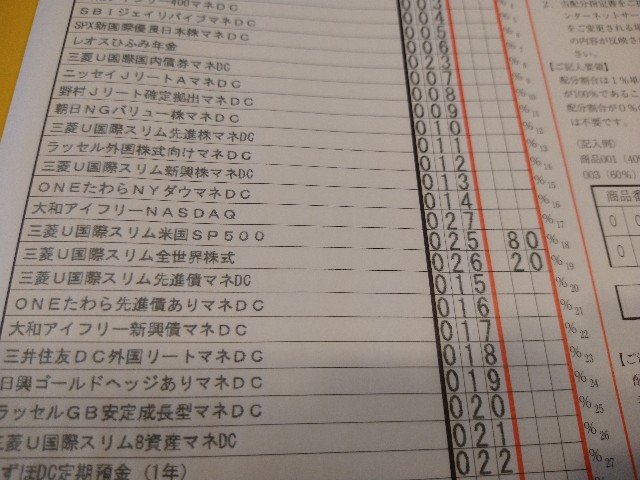 フリー400マネDC 003
SBIジェイリバイブマネDC 004
SPX新国際優良日本株マネDC 005
レオスひふみ年金 006
三菱U国際国内債券マネDC 023
ニッセイJリートAマネDC 007
野村Jリート確定拠出マネDC 008
朝日NGバリュー株マネDC 009
三菱U国際スリム先進株マネDC 010
ラッセル外国株式向けマネDC 011 % 12
三菱U国際スリム新興株マネDC 012 % 13
ONEたわらNYダウマネDC 013 % 15
大和アイフリーNASDAQ 014 % 16
027 % 17
三菱U国際スリム米国SP500 025 80 % 18
三菱U国際スリム全世界株式 026 20 % 19
三菱U国際スリム先進債マネDC 015 % 20
ONEたわら先進債ありマネDC 016 % 21
大和アイフリー新興債マネDC 017 % 22
三井住友DC外国リートマネDC 018 % 23
日興ゴールドヘッジありマネDC 019 % 24
ラッセルGB安定成長型マネDC 020 % 25
三菱U国際スリム8資産マネDC 021 % 26
ずほDC定期預金(1年) 022 % 27
2. 当配分指定書をご
ンターネットサー
をご変更される場
の内容が反映さ
さい。
【ご記入要領】
配分割合は1%単
が100%であるこ
配分割合が0%
は不要です。
〈記入例〉
商品001(40%
003(60%)
商品番
0 0
0
【ご